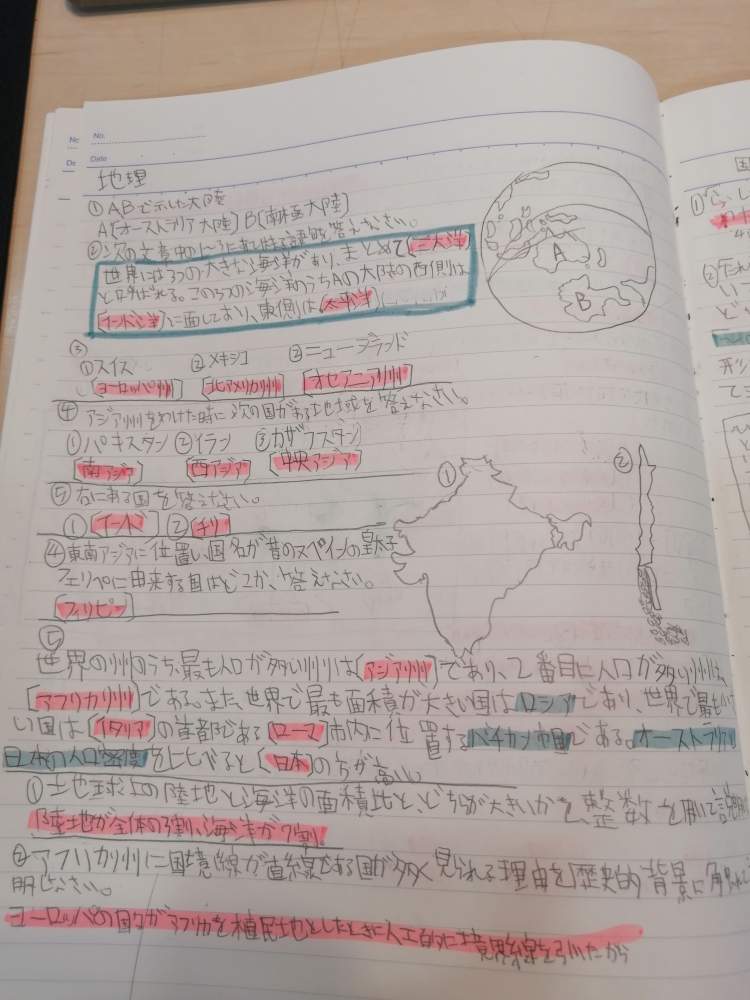 No.
Date
地理
① ABで示した大陸
A[オーストラリア大陸] B[南極大陸]
②次の文章中の に
語句を答えなさい。
世界には3つの大きな海洋があり、まとめて[三大洋]
と呼ばれる。この3つの海洋のうちAの大陸の西側は
[インド洋]に面しており、東側は[太平洋]
A
B
③
①スイス ②メキシコ ③ニュージーランド
[ヨーロッパ州] [北アメリカ州] [オセアニア州]
④ アジア州をわけた時に次の国がある地域を答えなさい。
①パキスタン ②イラン ③カザフスタン
[南アジア] [西アジア] [中央アジア]
⑤右にある国を答えなさい。
①[インド] ②[チリ]
① ②
④東南アジアに位置し、国名が昔のスペインの皇太子
フェリペに由来する国はどこか、答えなさい。
[フィリピン]
⑤
世界の州のうち、最も人口が多い州は[アジア州]であり、2番目に人口が多い州は、
[アフリカ州]である。また、世界で最も面積が大きい国はロシアであり、世界で最も
い国は[イタリア]の首都である[ローマ]市内に位置するバチカン市国である。オーストラリア
日本の人口密度を比べると[日本]の方が高い。
①地球上の陸地と海洋の面積比と、どちらが大きいかを、整数を用いて説明
陸地が全体の3割、海洋が7割
②アフリカ州に国境線が直線である国が多く見られる理由を歴史的背景に
明しなさい。
ヨーロッパの国々がアフリカを植民地としたときに人工的に境界線を引いたから